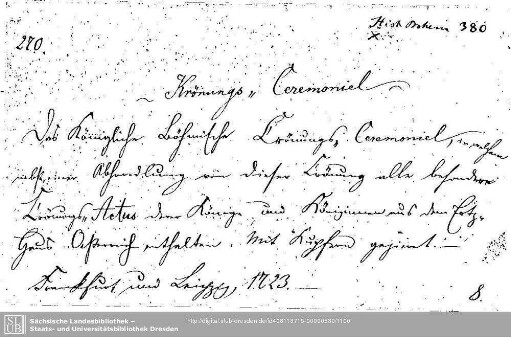 Hist Bohem 380
270.
Krönungs- Ceremoniel
Das Königliche Böhmische Crönungs-Ceremoniel, in welchem
nebst einer Abhandlung von dieser Crönung alle besondere
Crönungs-Actus derer Könige und Königinnen aus dem Ertz-
Haus Östreich enthalten. Mit Kupfern geziert.
Franckfurt und Leipzig, 1723.
8.
SLUB
Sächsische Landesbibliothek –
Staats- und Universitätsbibliothek Dresden